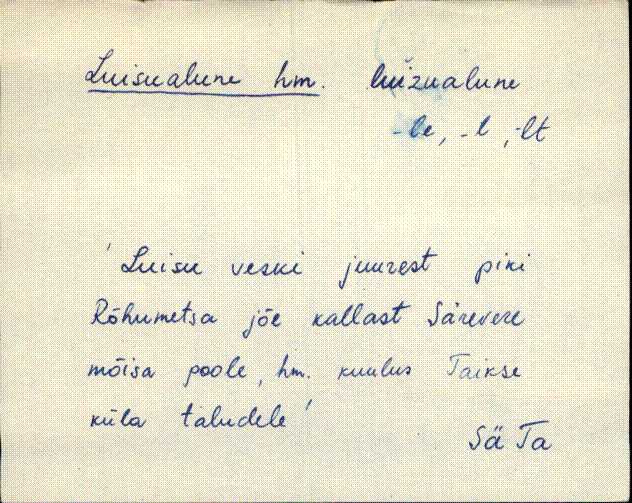 Luisualune hm. luižualune
-le, -l, -lt
'Luisu veski juurest piki
Rõhumetsa jõe kallast Särevere
mõisa poole, hm. kuulus Taikse
küla taludele'
Sä Ta